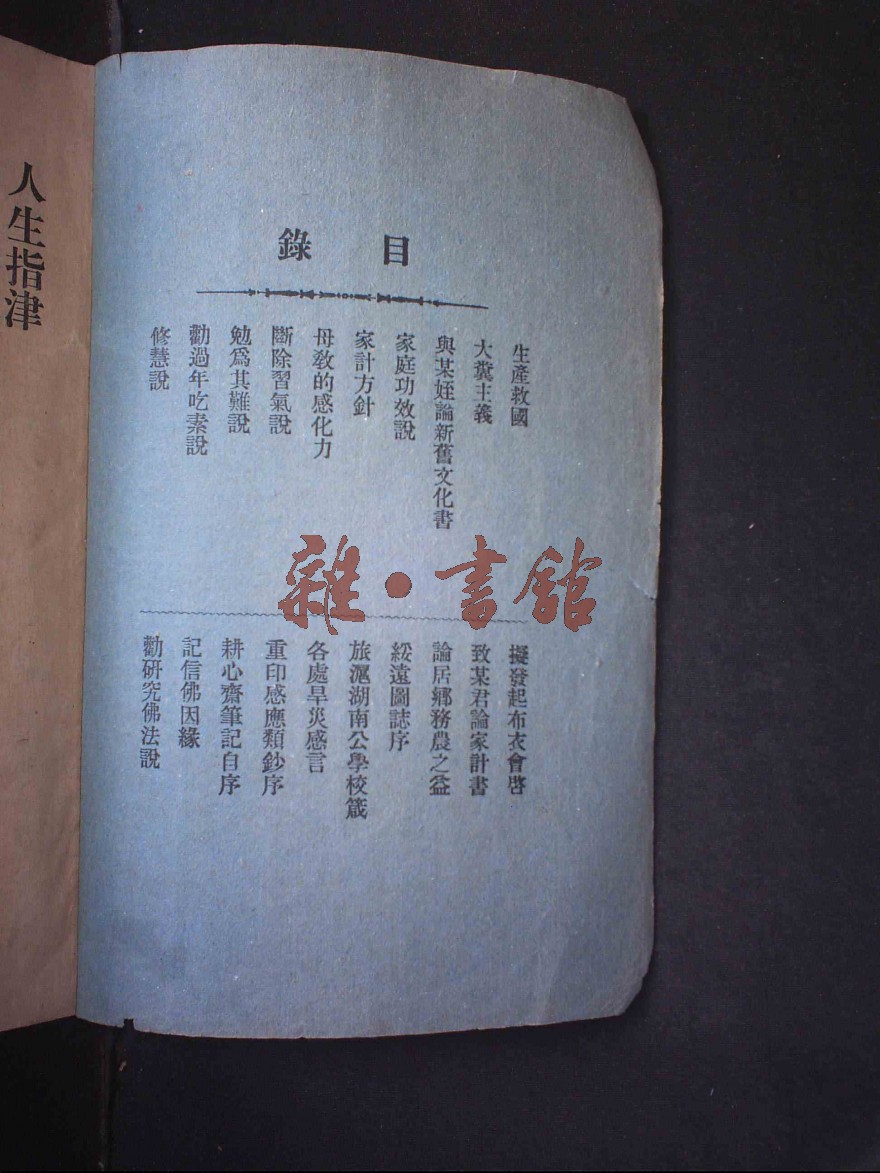 目錄
生產救國
大糞主義
與某姪論新舊文化書
家庭功效說
家計方針
母教的感化力
斷除習氣說
勉爲其難說
勸過年吃素說
修慧說
擬發起布衣會啓
致某君論家計書
論居鄉務農之益
綏遠圖誌序
旅滬湖南公學校箴
各處旱災感言
重印感應類鈔序
耕心齋筆記自序
記信佛因緣
勸研究佛法說
人生指津
雜·書館